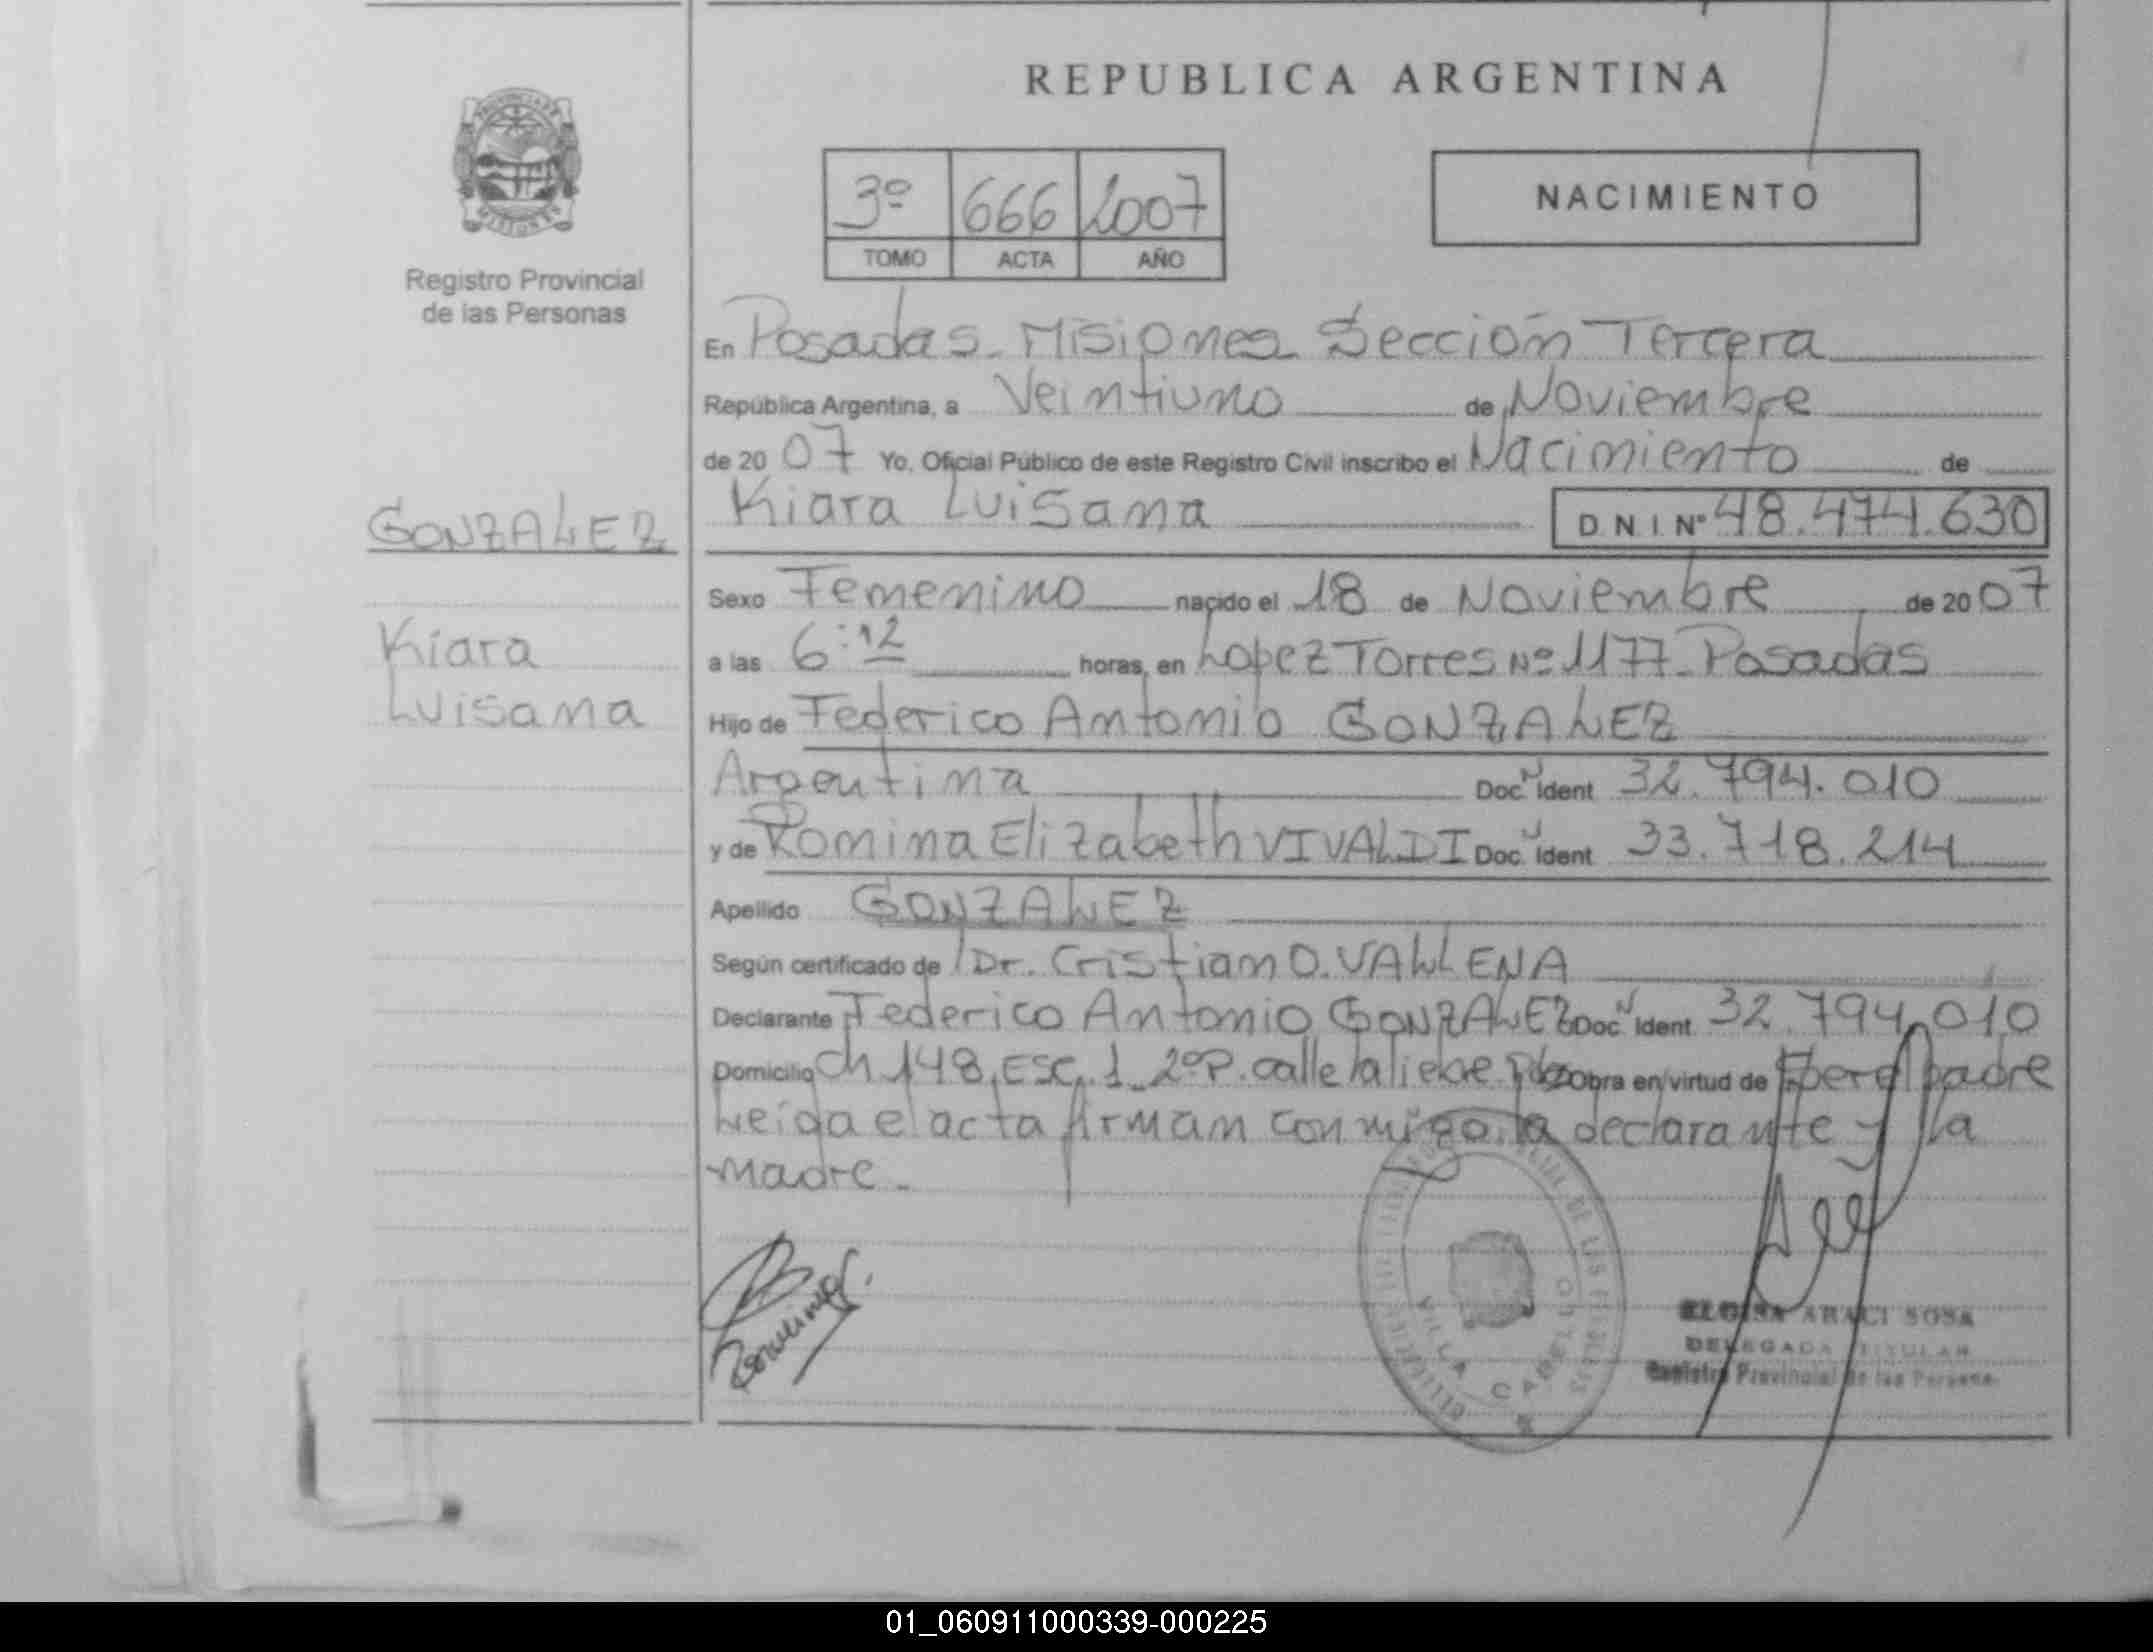 REPUBLICA ARGENTINA
PROVINCIA DE
MISIONES
Registro Provincial
de las Personas
3º 666 2007
TOMO ACTA AÑO
NACIMIENTO
En Posadas - Misiones Sección Tercera
República Argentina, a Veintiuno de Noviembre
de 2007 Yo, Oficial Público de este Registro Civil inscribo el Nacimiento de
Kiara Luisana D N I Nº 48.474.630
GONZALEZ
Kiara
Luisana
Sexo Femenino nacido el 18 de Noviembre de 2007
a las 6:12 horas, en Lopez Torres Nº 1177 - Posadas
Hijo de Federico Antonio GONZALEZ
Argentina Doc. Ident 32.794.010
y de Romina Elizabeth VIVALDI Doc. Ident 33.718.214
Apellido GONZALEZ
Según certificado de Dr. Cristian D. VALLENA
Declarante Federico Antonio GONZALEZ Doc. Ident. 32.794.010
Domicilio Ch 148, Esc. 1 - 2º P. calle la liebre Obra en virtud de padre
Leida el acta firman conmigo la declarante y la
madre -
VILLA CABELLO
ELOISA ARACI SOSA
DELEGADA TITULAR
Registro Provincial de las Persona
01_060911000339-000225